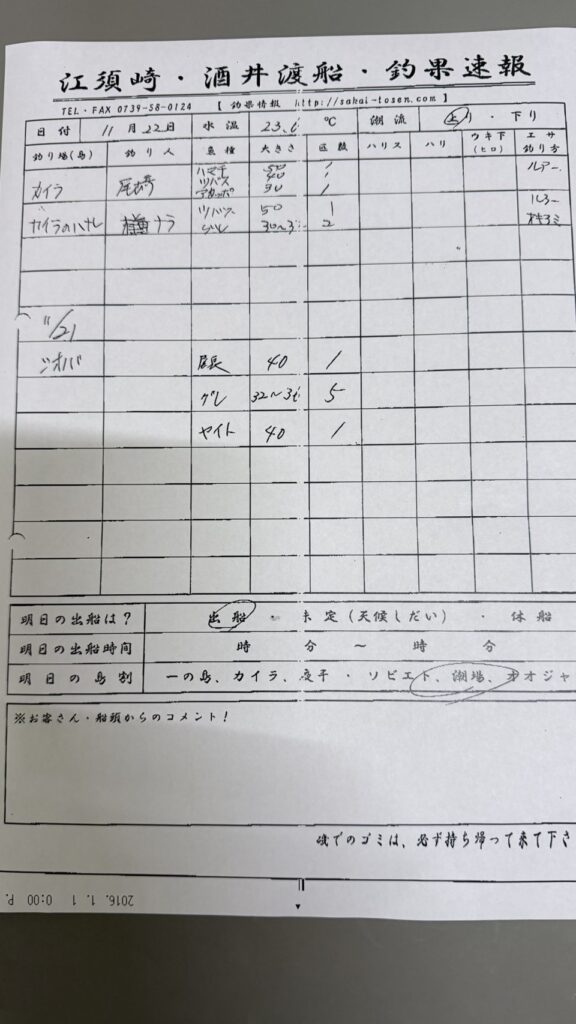 江須崎・酒井渡船・釣果速報
TEL・FAX 0739-58-0124 【 釣果情報 http://sakai-tosen.com 】
日付 11月22日 水温 23.i ℃ 潮流 上り・下り
釣り場(島) 釣り人 魚種 大きさ 匹数 ハリス ハリ ウキ下(ヒロ) エサ釣り方
カイラ 尾崎 ハマチ 50 1 ルアー
ツバス 40 1
アカハッポ 30 1
カイラのハナレ ツバス 50 1 ルアー
グレ 30〜3i 2 オキアミ
11/21
シオバ 尾長 40 1
グレ 32〜3i 5
ヤイト 40 1
明日の出船は? 出船・未定(天候しだい)・休船
明日の出船時間 時 分 〜 時 分
明日の島割 一の島、カイラ、・ソビエト、潮場、オオジャ
※お客さん・船頭からのコメント!
磯でのゴミは、必ず持ち帰って来て下さ
2016. 1. 1 0:00 P.